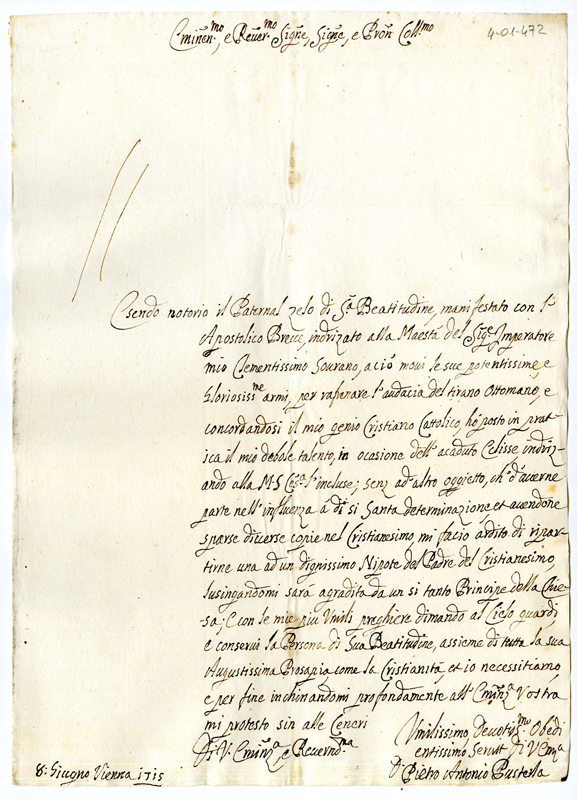 Eminen.mo, e Rever.mo Sig.re, Sig.re, e Pron Coll.mo
4-01-472
Esendo notorio il Paternal zelo di S.a Beatitudine, manifestato con l'
Apostolico Breve, indrizato alla Maestà del Sig.r Imperatore
mio Clementissimo Sourano, aciò moui le sue potentissime, e
Gloriosiss.me armi, per rafrenare l'audacia del tirano Ottomano, e
concordandosi il mio genio Cristiano Cattolico, hò posto in prat-
ica il mio debole talento, in ocasione dell' acaduto Eclisse indriz-
ando alla M.S. l'incluse; senz ad altro oggietto, ch' d' auerne
parte nell' influenza à di si Santa determinazione, et auendone
sparse diuerse copie nel Cristianesimo, mi facio ardito di ripar-
tirne una ad un dignissimo Nipote del Padre del Cristianesimo,
lusingandomi sarà agradita da un si tanto Principe della Chie-
sa; E con le mie più Umili preghiere dimando al Cielo guardi,
e conserui la Persona di Sua Beatitudine, assieme di tutta la sua
Augustissima Prosapia come la Cristianità, et io necessitiamo,
e per fine inchinandomi profondamente all' Eminz.a Vostra
mi protesto sin alle Ceneri
Di V: Eminz.a, e Reverend.ma
Umilissimo Deuotis.mo Obedi
entissimo Seruit.r Di V Emza
Pietro Antonio Pusterla
8: Giugno Vienna 1715